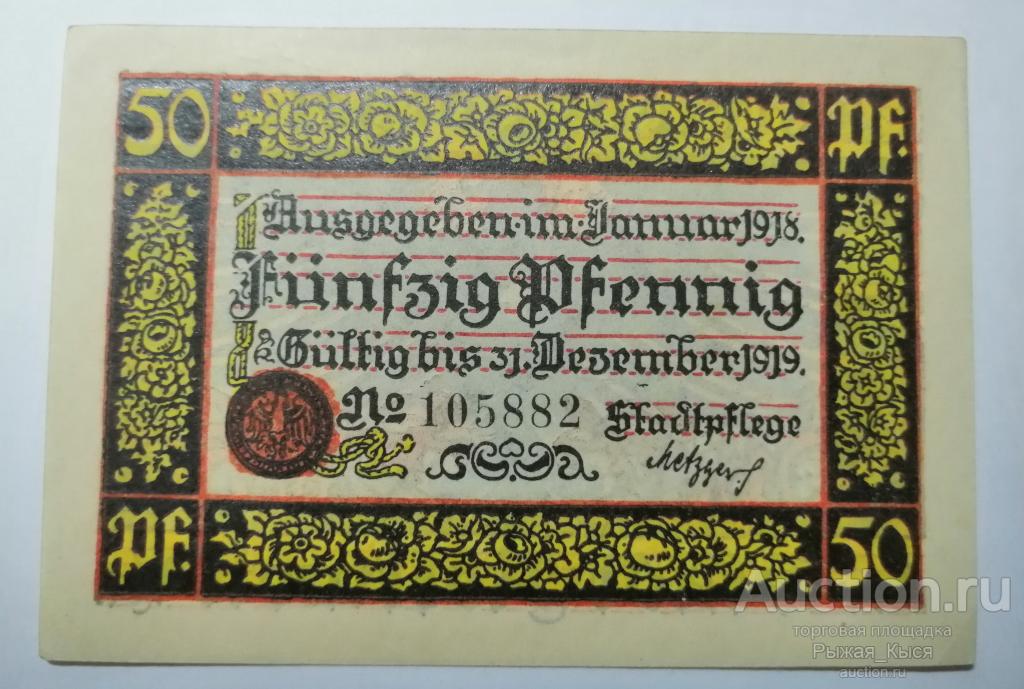 50 Pf.
Ausgegeben·im·Januar 1918.
Fünfzig Pfennig
Gültig bis 31. Dezember 1919.
No 105882 Stadtpflege
Metzger
Pf. 50
Auction.ru
торговая площадка
Рыжая_Кыся
auction.ru